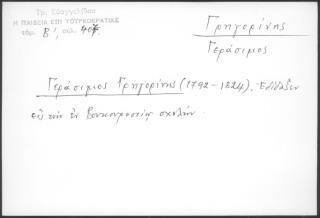 Τρ. Εὐαγγελίδου
Η ΠΑΙΔΕΙΑ ΕΠΙ ΤΟΥΡΚΟΚΡΑΤΙΑΣ
τόμ. Β', σελ. 407.
Γρηγορίνης
Γεράσιμος
Γεράσιμος Γρηγορίνης (1792-1824). Ἐδίδαξεν
εἰς τὴν ἐν Βουκουρεστίῳ σχολήν.